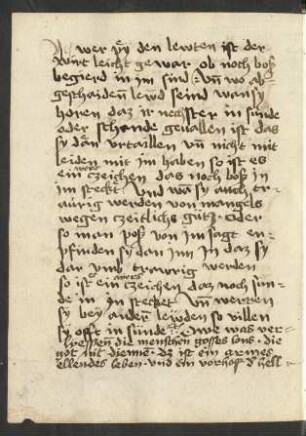 wer pey den lewten ist der
wirt leicht gewar ob noch boß
begierd in im sind Vnd wo ab-
geschaiden lewd seind wan sy
horen daz ir nechster in sunde
oder schande geuallen ist das
sy dan vrtaillen vnd nicht mit
leiden mit im haben so ist es
ein czeichen das noch boß in
im steckt Vnd wan sy auch tr-
aurig werden von mangels
wegen czeitlichs gutz Oder
so man poß von im sagt en-
pfinden sy dan im in daz sy
dar vmb trawrig werden
so ist es ein czeichen daz noch sun-
de in in stecket Vnd werren
sy bey andern lewden so villen
sy offt in sunde Owe was ver-
die menschen gottes sons die
got nit diene Dz ist ein armes
ellendes leben vnd ein vorhoff d hell